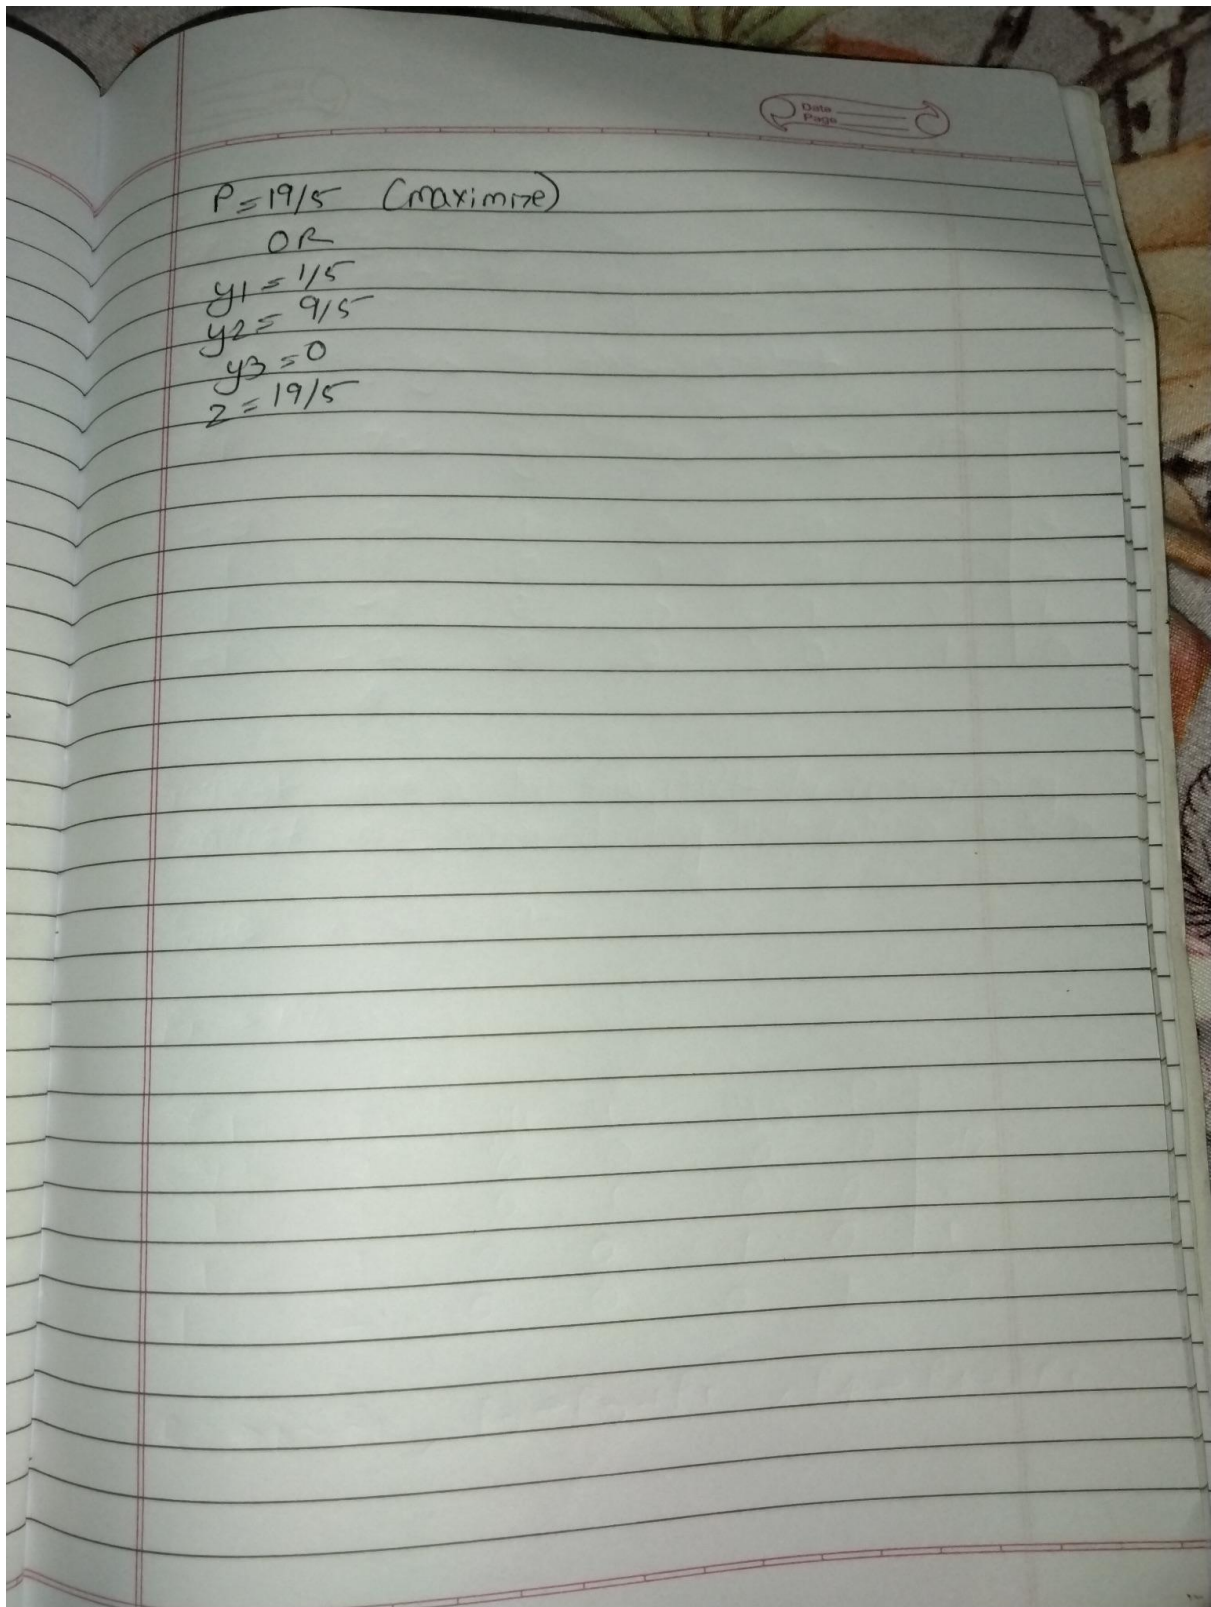 Date
Page
P=19/5 (maximize)
OR
y1 = 1/5
y2 = 9/5
y3 = 0
z = 19/5